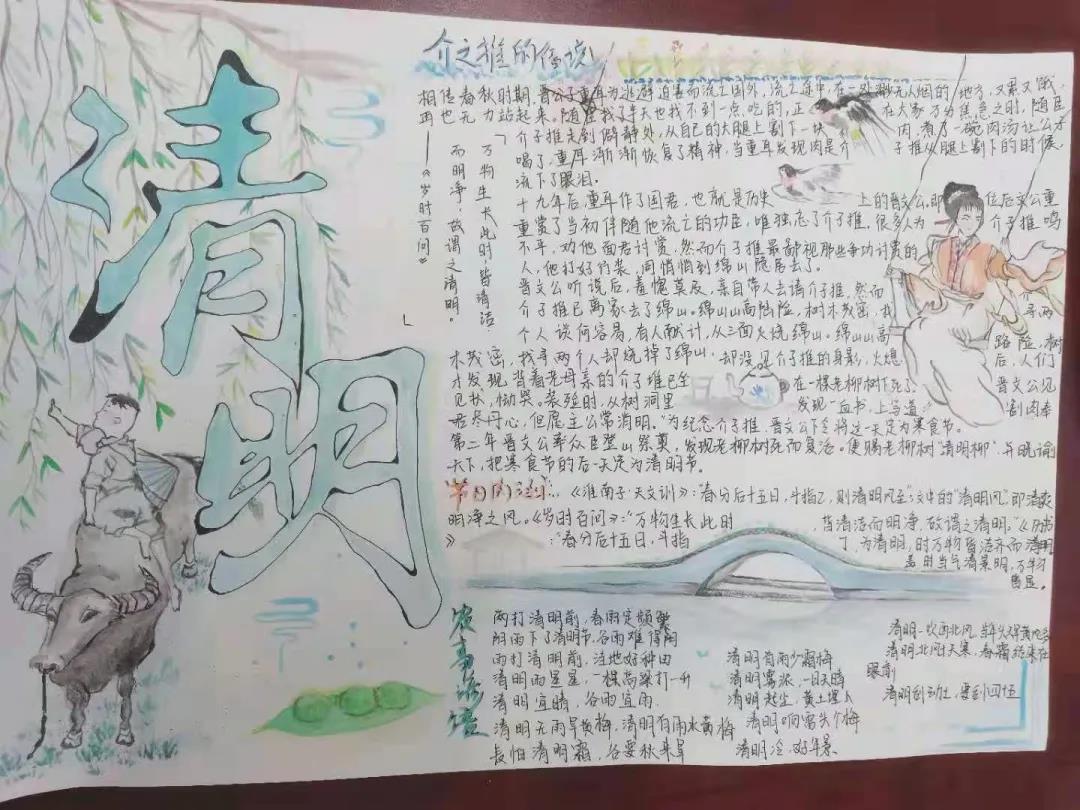 清明
介之推的传说
万物生长此时，皆清洁
而明净，故谓之清明。
——《岁时百问》
相传春秋时期，晋公子重耳为逃避迫害而流亡国外，流亡途中，在一处渺无人烟的地方，又累又饿，
再也无力站起来。随臣找了半天也找不到一点吃的，正在大家万分焦急之时，随臣
介子推走到僻静处，从自己的大腿上割下一块肉，煮了一碗肉汤让公子
喝了，重耳渐渐恢复了精神，当重耳发现肉是介子推从腿上割下的时候，
流下了眼泪。
十九年后，重耳作了国君，也就是历史上的晋文公，即位后文公重
重赏了当初伴随他流亡的功臣，唯独忘了介子推，很多人为介子推鸣
不平，劝他面君讨赏，然而介子推最鄙视那些争功讨赏的
人，他打好行装，同悄悄到绵山隐居去了。
晋文公听说后，羞愧莫及，亲自带人去请介子推，然而
介子推已离家去了绵山。绵山山高路险，树木茂密，找寻两
个人谈何容易，有人献计，从三面火烧绵山。绵山山高路险，树
木茂密，找寻两个人却烧掉了绵山，却没见介子推的身影，火熄后，人们
才发现背着老母亲的介子推已坐在一棵老柳树下死了。晋文公见
见状，恸哭。装殓时，从树洞里发现一血书，上写道：割肉奉
君尽丹心，但愿主公常清明。"为纪念介子推，晋文公下令将这一天定为寒食节。
第二年晋文公率众臣登山祭奠，发现老柳树死而复活。便赐老柳树"清明柳"，并晓谕
天下，把寒食节的后一天定为清明节。
《淮南子·天文训》："春分后十五日，斗指乙，则清明风至"文中的"清明风"即清爽
明净之风。《岁时百问》："万物生长此时皆清洁而明净，故谓之清明。"《历书
》："春分后十五日，斗指丁，为清明，时万物皆洁齐而清明
盖时当气清景明，万物
皆显。
农事谚语
雨打清明前，春雨定频繁
阴雨下了清明节，谷雨难得雨
雨打清明前，洼地好种田
清明雨星星，一棵高粱打一升
清明宜晴，谷雨宜雨
清明无雨旱黄梅，清明有雨水黄梅
麦怕清明霜，谷要秋来旱
清明有雨少霜梅
清明雾浓，一日天晴
清明起尘，黄土埋人
清明响雷头个梅
清明冷，好年景
清明一吹西北风，
清明北风十天寒，春霜结束在
眼前